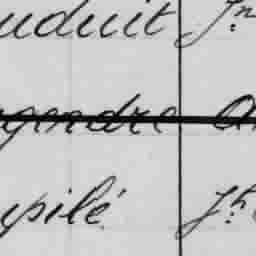 uduit Jn
gendre A
upilé Jh